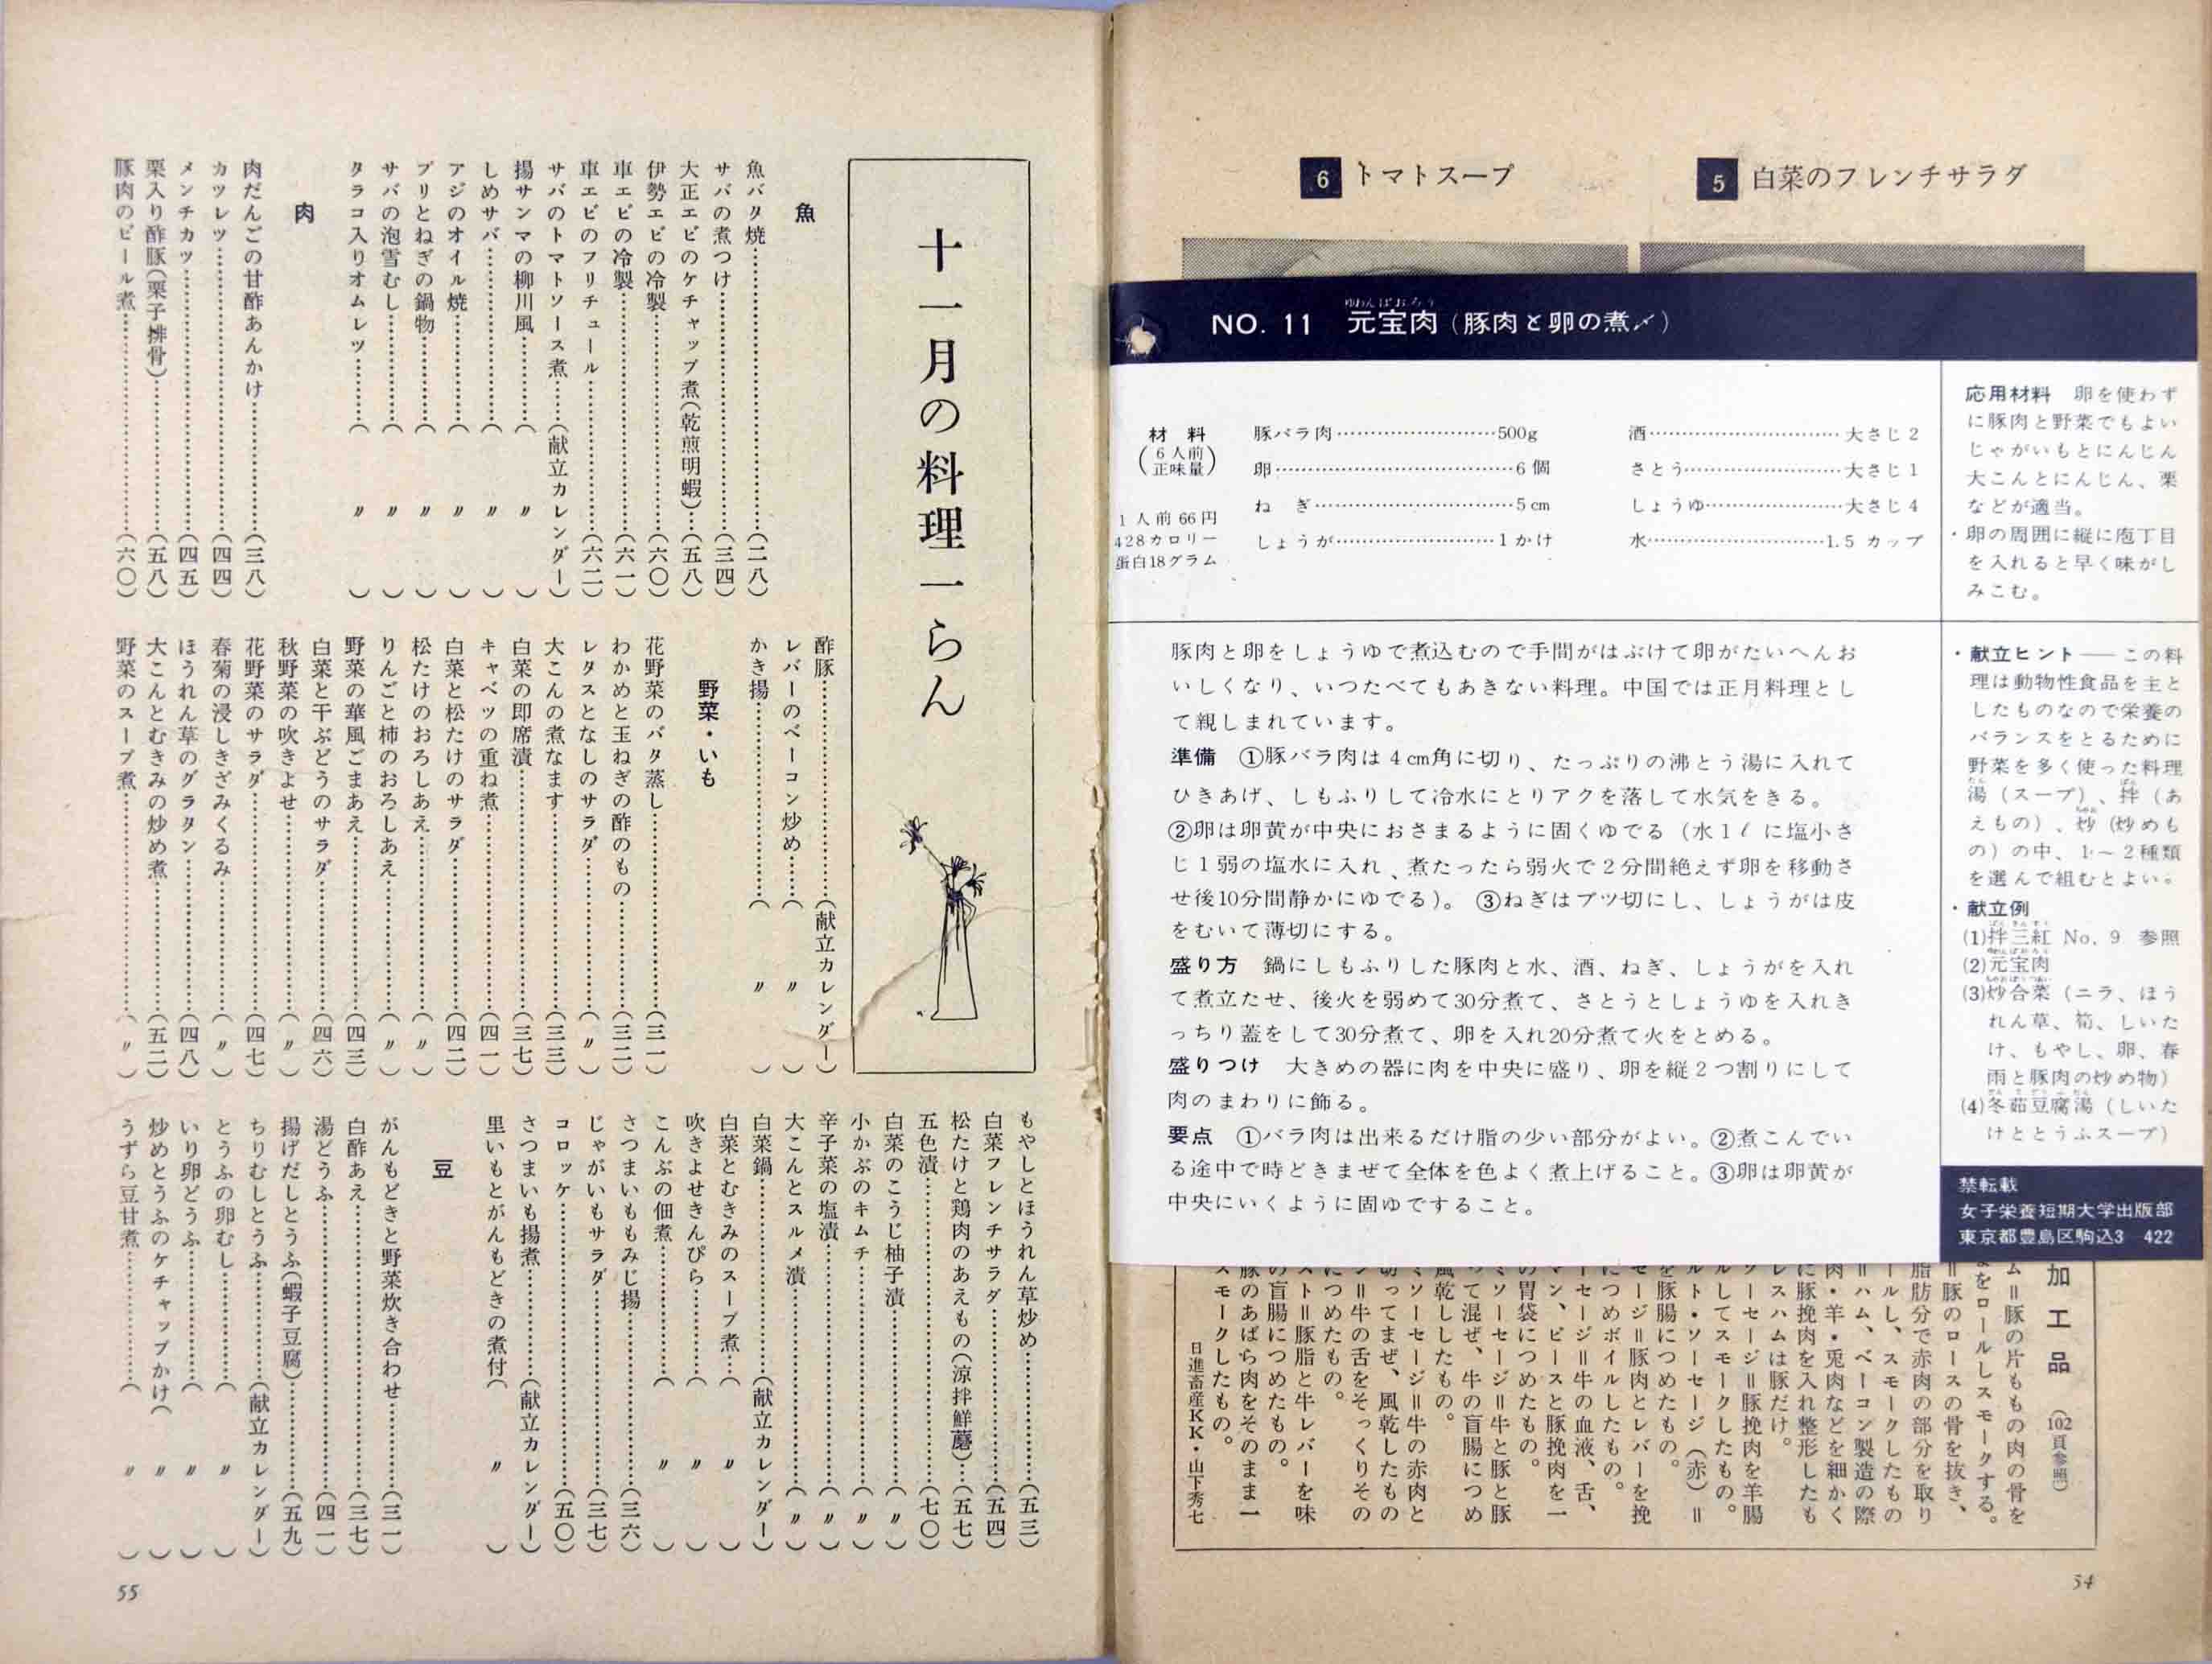 5 白菜のフレンチサラダ
6 トマトスープ
NO. 11 元宝肉（豚肉と卵の煮〆）
ゆわんぱおろう
材料
（6人前正味量）
1人前 66円
428カロリー
蛋白18グラム
豚バラ肉……………………500g
卵……………………………6個
ねぎ…………………………5cm
しょうが……………………1かけ
酒……………………………大さじ2
さとう………………………大さじ1
しょうゆ……………………大さじ4
水……………………………1.5カップ
応用材料　卵を使わず
に豚肉と野菜でもよい
じゃがいもとにんじん
大こんとにんじん、栗
などが適当。
・卵の周囲に縦に庖丁目
を入れると早く味がし
みこむ。
豚肉と卵をしょうゆで煮込むので手間がはぶけて卵がたいへんお
いしくなり、いつたべてもあきない料理。中国では正月料理とし
て親しまれています。
準備　①豚バラ肉は4cm角に切り、たっぷりの沸とう湯に入れて
ひきあげ、しもふりして冷水にとりアクを落して水気をきる。
②卵は卵黄が中央におさまるように固くゆでる（水1ℓに塩小さ
じ1弱の塩水に入れ、煮たったら弱火で2分間絶えず卵を移動さ
せ後10分間静かにゆでる）。③ねぎはブツ切にし、しょうがは皮
をむいて薄切にする。
盛り方　鍋にしもふりした豚肉と水、酒、ねぎ、しょうがを入れ
て煮立たせ、後火を弱めて30分煮て、さとうとしょうゆを入れき
っちり蓋をして30分煮て、卵を入れ20分煮て火をとめる。
盛りつけ　大きめの器に肉を中央に盛り、卵を縦2つ割りにして
肉のまわりに飾る。
要点　①バラ肉は出来るだけ脂の少い部分がよい。②煮こんでい
る途中で時どきまぜて全体を色よく煮上げること。③卵は卵黄が
中央にいくように固ゆですること。
・献立ヒント――この料
理は動物性食品を主と
したものなので栄養の
バランスをとるために
野菜を多く使った料理
湯（スープ）、拌（あ
えもの）、炒（炒めも
の）の中、1～2種類
を選んで組むとよい。
・献立例
(1)拌三紅 No. 9 参照
(2)元宝肉
(3)炒合菜（ニラ、ほう
れん草、筍、しいた
け、もやし、卵、春
雨と豚肉の炒め物）
(4)冬茹豆腐湯（しいた
けととうふスープ）
禁転載
女子栄養短期大学出版部
東京都豊島区駒込3 422
加工品（102頁参照）
ム＝豚の片ももの肉の骨を
をロールしスモークする。
＝豚のロースの骨を抜き、
脂肪分で赤肉の部分を取り
ールし、スモークしたもの
＝ハム、ベーコン製造の際
肉・羊・兎肉などを細かく
に豚挽肉を入れ整形したも
レスハムは豚だけ。
ソーセージ＝豚挽肉を羊腸
ルしてスモークしたもの。
ルト・ソーセージ（赤）＝
を豚腸につめたもの。
セージ＝豚肉とレバーを挽
につめボイルしたもの。
ーセージ＝牛の血液、舌、
マン、ピースと豚挽肉を一
の胃袋につめたもの。
ミソーセージ＝牛と豚と豚
って混ぜ、牛の盲腸につめ
風乾ししたもの。
ミソーセージ＝牛の赤肉と
切ってまぜ、風乾したもの
ン＝牛の舌をそっくりその
につめたもの。
スト＝豚脂と牛レバーを味
の盲腸につめたもの。
豚のあばら肉をそのまま一
スモークしたもの。
日進畜産KK・山下秀七
54
十一月の料理一らん
魚
魚バタ焼……………（二八）
サバの煮つけ……………（三四）
大正エビのケチャップ煮（乾煎明蝦）…（五八）
伊勢エビの冷製……………（六〇）
車エビの冷製……………（六一）
車エビのフリチュール……………（六二）
サバのトマトソース煮……（献立カレンダー）
揚サンマの柳川風………（　〃　）
しめサバ……………（　〃　）
アジのオイル焼………（　〃　）
ブリとねぎの鍋物………（　〃　）
サバの泡雪むし………（　〃　）
タラコ入りオムレツ………（　〃　）
肉
肉だんごの甘酢あんかけ……………（三八）
カツレツ……………（四四）
メンチカツ……………（四五）
栗入り酢豚（栗子排骨）……………（五八）
豚肉のビール煮……………（六〇）
酢豚……………（献立カレンダー）
レバーのベーコン炒め……（　〃　）
かき揚……………（　〃　）
野菜・いも
花野菜のバタ蒸し……………（三一）
わかめと玉ねぎの酢のもの……………（三二）
レタスとなしのサラダ……………（〃）
大こんの煮なます……………（三三）
白菜の即席漬……………（三七）
キャベツの重ね煮……………（四一）
白菜と松たけのサラダ……………（四二）
松たけのおろしあえ……………（〃）
りんごと柿のおろしあえ……………（〃）
野菜の華風ごまあえ……………（四三）
白菜と干ぶどうのサラダ……………（四六）
秋野菜の吹きよせ……………（〃）
花野菜のサラダ……………（四七）
春菊の浸しきざみくるみ……………（〃）
ほうれん草のグラタン……………（四八）
大こんとむきみの炒め煮……………（五二）
野菜のスープ煮……………（〃）
もやしとほうれん草炒め……………（五三）
白菜フレンチサラダ……………（五四）
松たけと鶏肉のあえもの（涼拌鮮蘑）…（五七）
五色漬……………（七〇）
白菜のこうじ柚子漬……………（〃）
小かぶのキムチ……………（〃）
辛子菜の塩漬……………（〃）
大こんとスルメ漬……………（〃）
白菜鍋……………（献立カレンダー）
白菜とむきみのスープ煮…（　〃　）
吹きよせきんぴら………（　〃　）
こんぶの佃煮……………（　〃　）
さつまいももみじ揚……………（三六）
じゃがいもサラダ……………（三七）
コロッケ……………（五〇）
さつまいも揚煮……………（献立カレンダー）
里いもとがんもどきの煮付（　〃　）
豆
がんもどきと野菜炊き合わせ……………（三一）
白酢あえ……………（三七）
湯どうふ……………（四一）
揚げだしとうふ（蝦子豆腐）……………（五九）
ちりむしとうふ……………（献立カレンダー）
とうふの卵むし……………（　〃　）
いり卵どうふ……………（　〃　）
炒めとうふのケチャップかけ（　〃　）
うずら豆甘煮……………（　〃　）
55